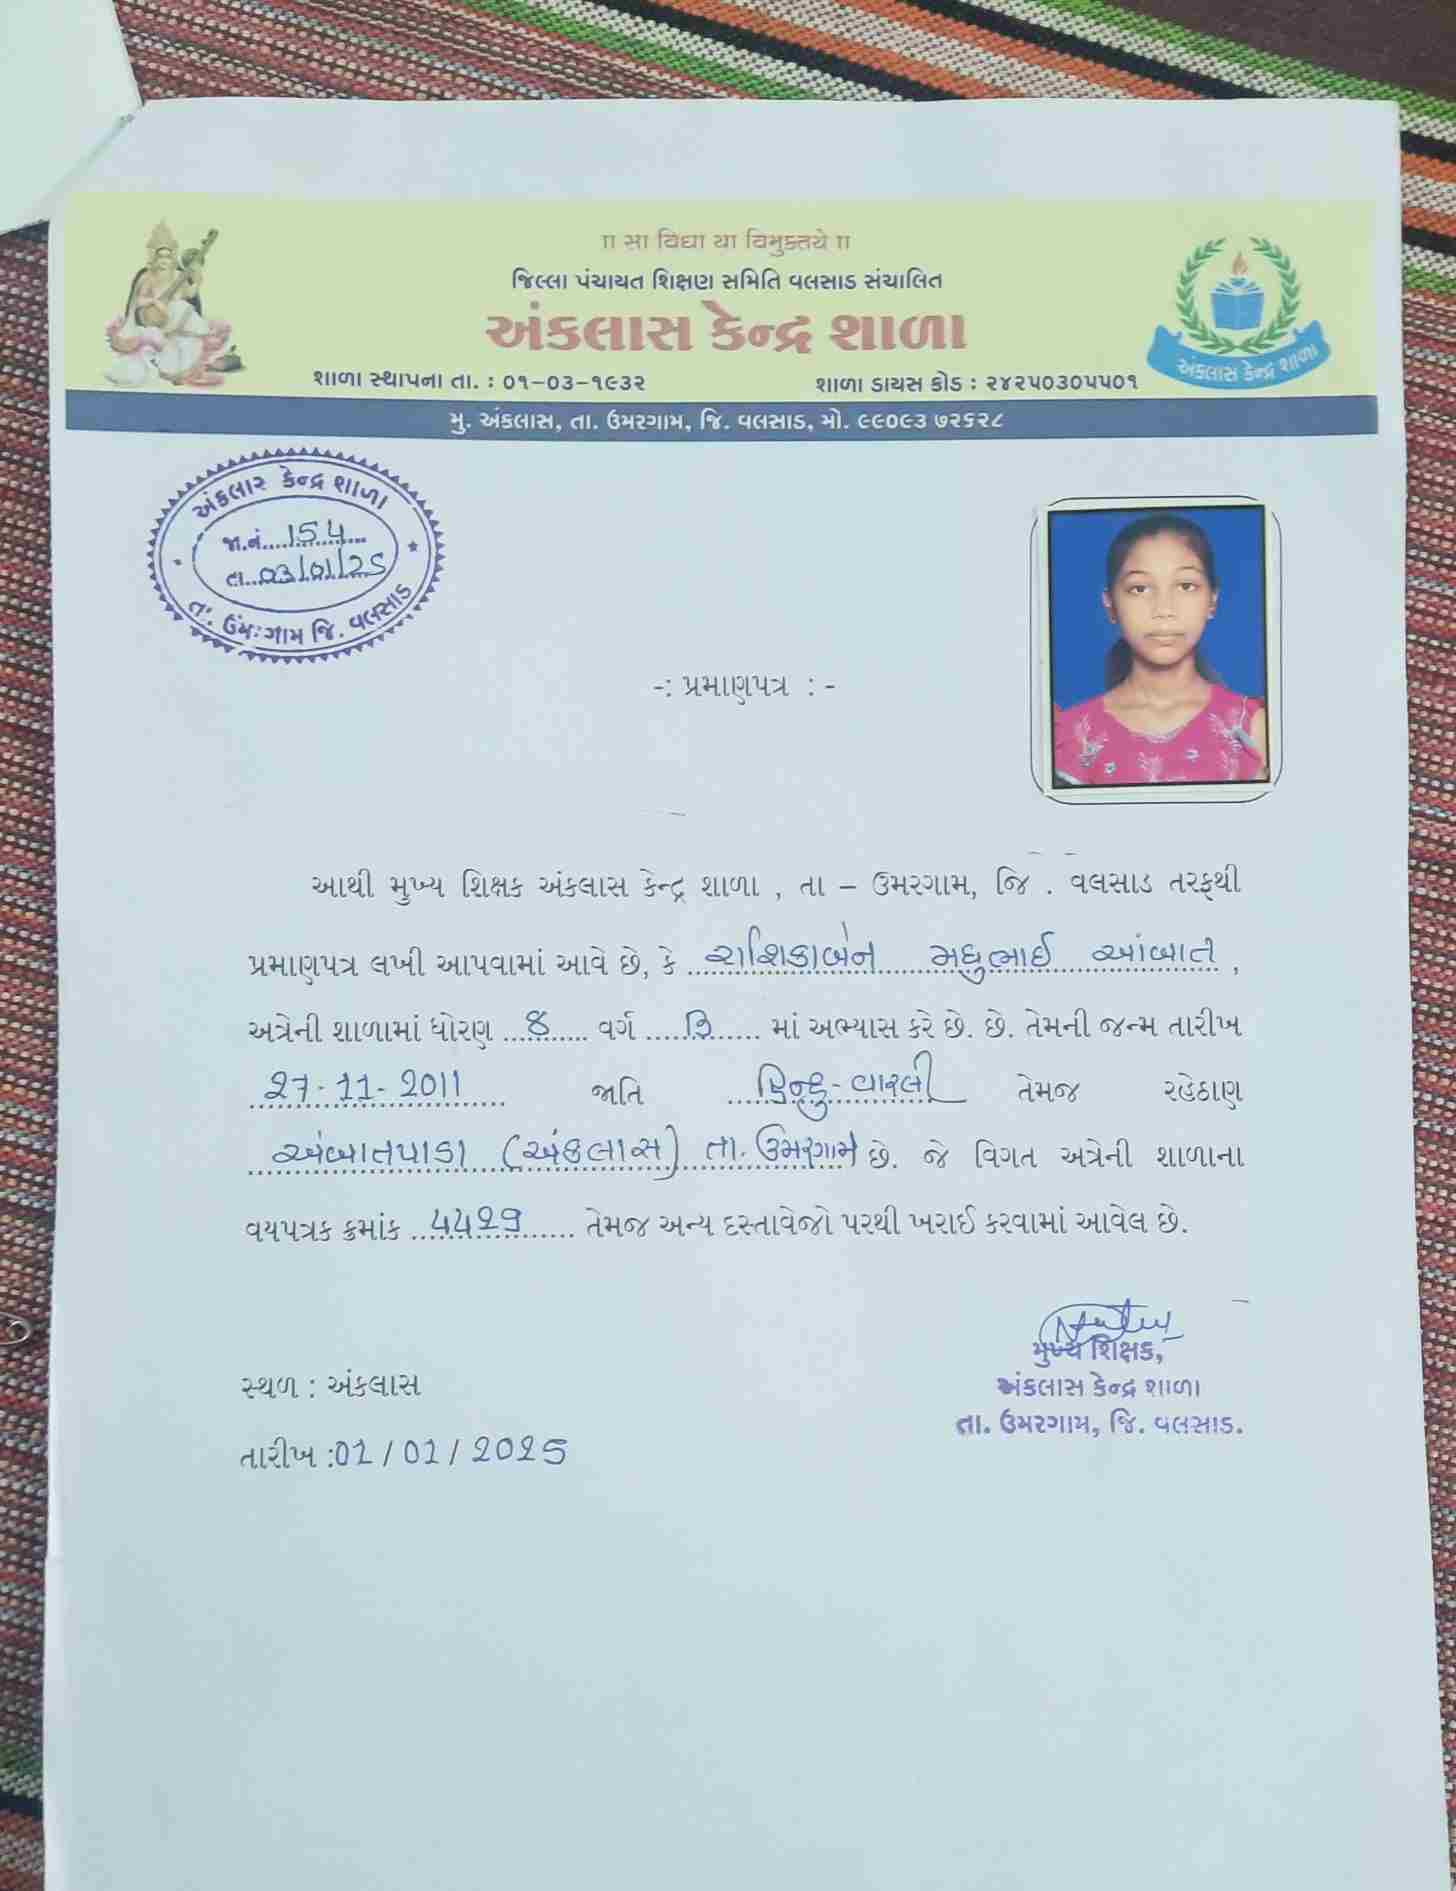 ॥ સા વિદ્યા યા વિમુક્તયે ॥
જિલ્લા પંચાયત શિક્ષણ સમિતિ વલસાડ સંચાલિત
અંકલાસ કેન્દ્ર શાળા
શાળા સ્થાપના તા. : ૦૧-૦૩-૧૯૩૨ શાળા ડાયસ કોડ : ૨૪૨૫૦૩૦૫૫૦૧
અંકલાસ કેન્દ્ર શાળા
મુ. અંકલાસ, તા. ઉમરગામ, જિ. વલસાડ, મો. ૯૯૦૯૩ ૭૨૬૨૮
અંકલાસ કેન્દ્ર શાળા
જા.નં. 154
તા. 03/01/25
તા. ઉમરગામ જિ. વલસાડ
-: પ્રમાણપત્ર : -
આથી મુખ્ય શિક્ષક અંકલાસ કેન્દ્ર શાળા , તા – ઉમરગામ, જિ . વલસાડ તરફથી
પ્રમાણપત્ર લખી આપવામાં આવે છે, કે રાશિકાબેન મધુભાઈ આંબાત ,
અત્રેની શાળામાં ધોરણ 8 વર્ગ માં અભ્યાસ કરે છે. છે. તેમની જન્મ તારીખ
27-11-2011 જાતિ હિન્દુ-વારલી તેમજ રહેઠાણ
અંબાતપાડા (અંકલાસ) તા. ઉમરગામ છે. જે વિગત અત્રેની શાળાના
વયપત્રક ક્રમાંક ૫૫૨૭ તેમજ અન્ય દસ્તાવેજો પરથી ખરાઈ કરવામાં આવેલ છે.
મુખ્ય શિક્ષક,
અંકલાસ કેન્દ્ર શાળા
તા. ઉમરગામ, જિ. વલસાડ.
સ્થળ : અંકલાસ
તારીખ :01 / 01 / 2025